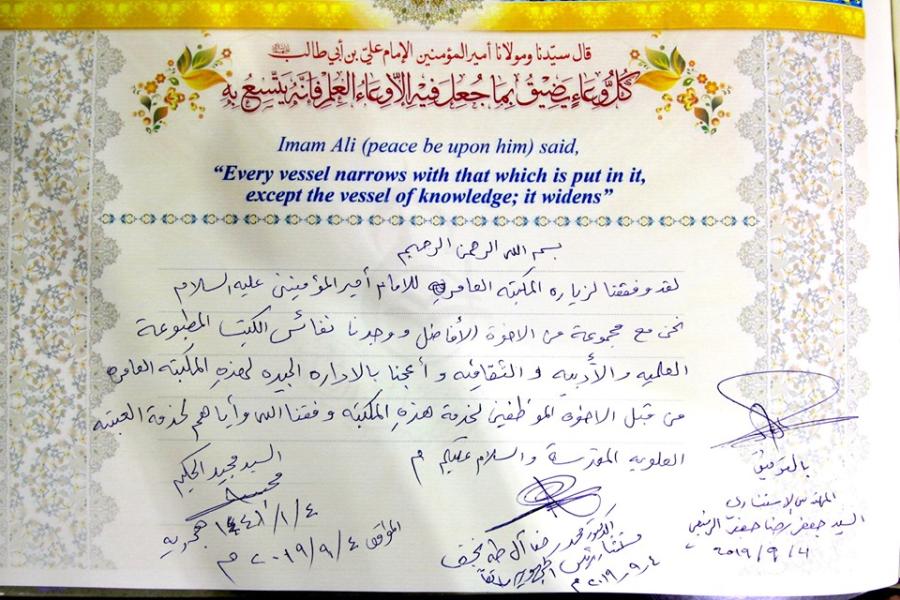 قال سيّدنا ومولانا أمير المؤمنين الإمام عليّ بن أبي طالب
كُلُّ وِعَاءٍ يَضِيْقُ بِمَا جُعِلَ فِيْهِ إِلَّا وِعَاءَ الْعِلْمِ فَإِنَّهُ يَتَّسِعُ بِهِ
Imam Ali (peace be upon him) said,
“Every vessel narrows with that which is put in it,
except the vessel of knowledge; it widens”
بسم الله الرحمن الرحيم
لقد وفقنا لزياره المكتبه العامره للامام أمير المؤمنين عليه السلام
نحن مع مجموعة من الاخوة الأفاضل ووجدنا نفائس الكتب المطبوعة
العلميه والأدبيه والثقافيه وأعجبنا بالاداره الجيده لهذه المكتبه العامره
من قبل الاخوة الموظفين لخدمة هذه المكتبه وفقنا الله وأياهم لخدمة العتبه
العلويه المقدسة والسلام عليكم
السيد مجيد الحكيم
١٤٤١/١/٤ هجريه
الموافق ٢٠١٩/٩/٤ م
الدكتور محمد رضا آل طه نجف
مستشار رئيس الجمهورية سابقا
٢٠١٩/٩/٤ م
بالتوفيق
المهندس الاستشاري
السيد جعفر رضا جعفر
٢٠١٩/٩/٤